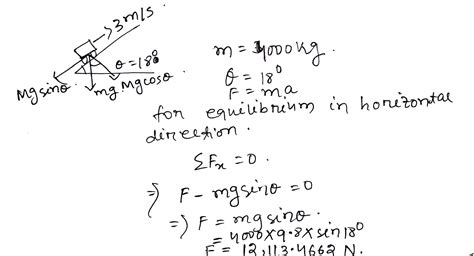 3m/s
θ=18°
Mgsinθ
mg
Mgcosθ
m = 4000kg
θ = 18°
F = ma
for equilibrium in horizontal
direction.
ΣFx = 0
⇒) F - mgsinθ = 0
⇒) F = mgsinθ.
= 4000×9.8×sin18°
F = 12,113.4662 N.